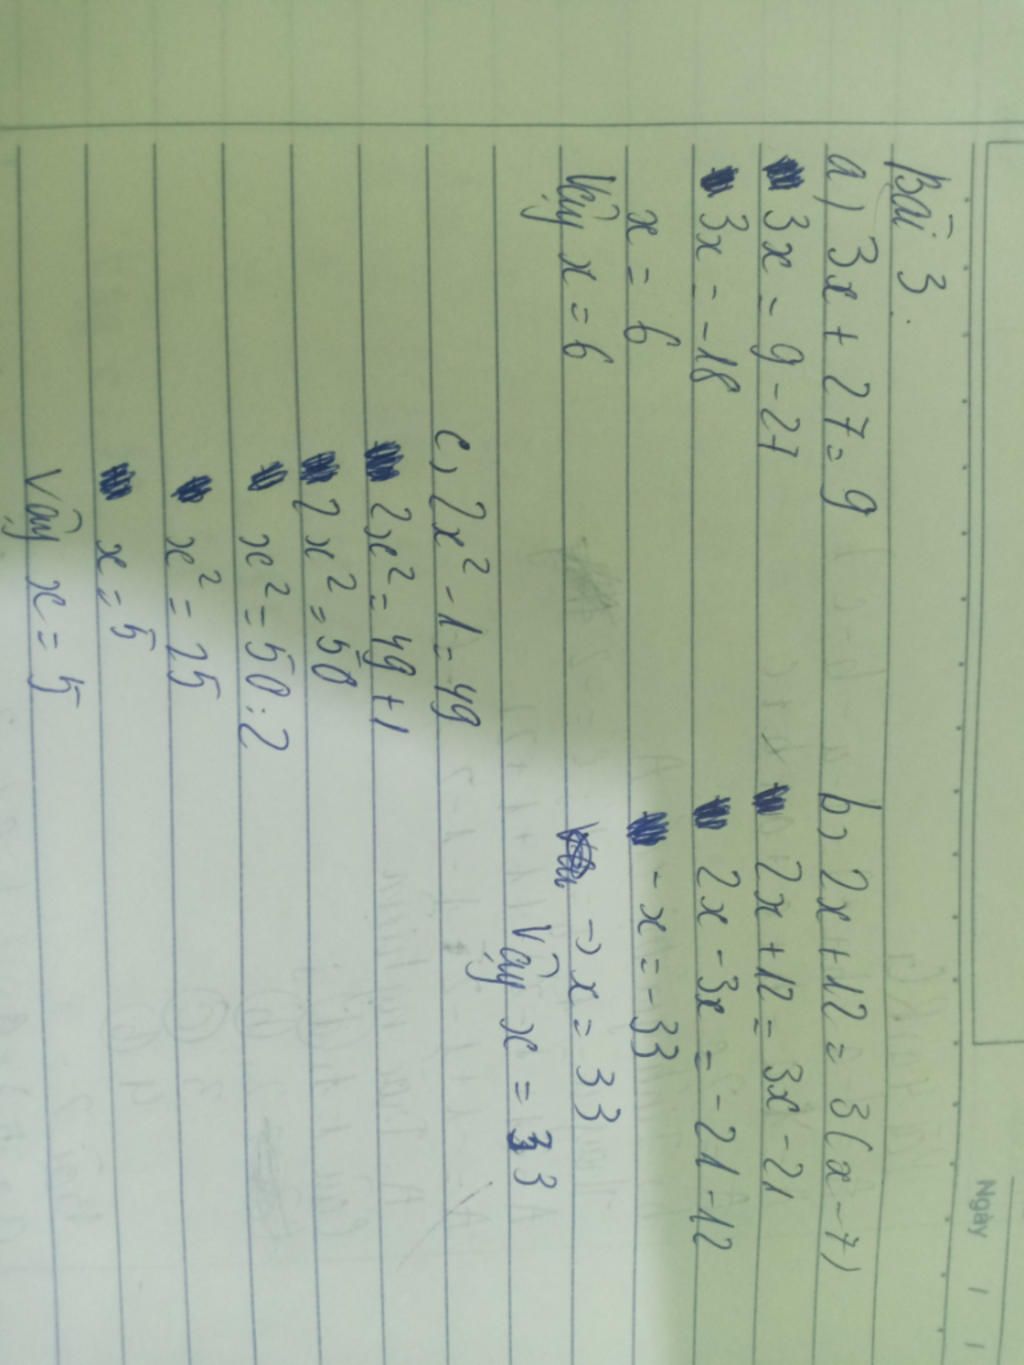 Ngày / /
Bài 3.
a) 3x + 27 = 9
3x = 9 - 27
3x = -18
x = 6
Vậy x = 6
b, 2x + 12 = 3(x - 7)
2x + 12 = 3x - 21
2x - 3x = -21 - 12
-x = -33
→ x = 33
Vậy x = 33
c, 2x² - 1 = 49
2x² = 49 + 1
2x² = 50
x² = 50 : 2
x² = 25
x = 5
Vậy x = 5